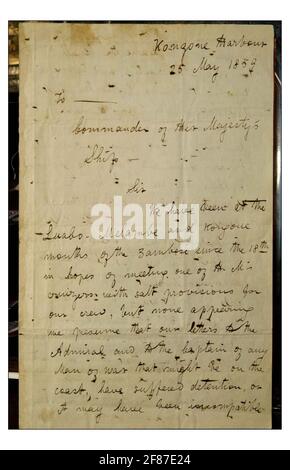 Kongone Harbour
25 May 1859
To
Commander of Her Majesty's
Ship —
Sir
We have been at the
Luabo and Kongone
mouths of the Zambesi since the 18th
in hopes of meeting one of H. M's
cruizers with salt provisions for
our crew, but none appearing
we presume that our letters to the
Admiral and to the Captain of any
Man of war that might be on the
coast, have suffered detention, or
it may have been incompatible
alamy
Image ID: 2F87E24
www.alamy.com